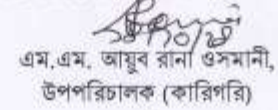 এম.এম. আয়ুব রানা ওসমানী,
উপপরিচালক (কারিগরি)